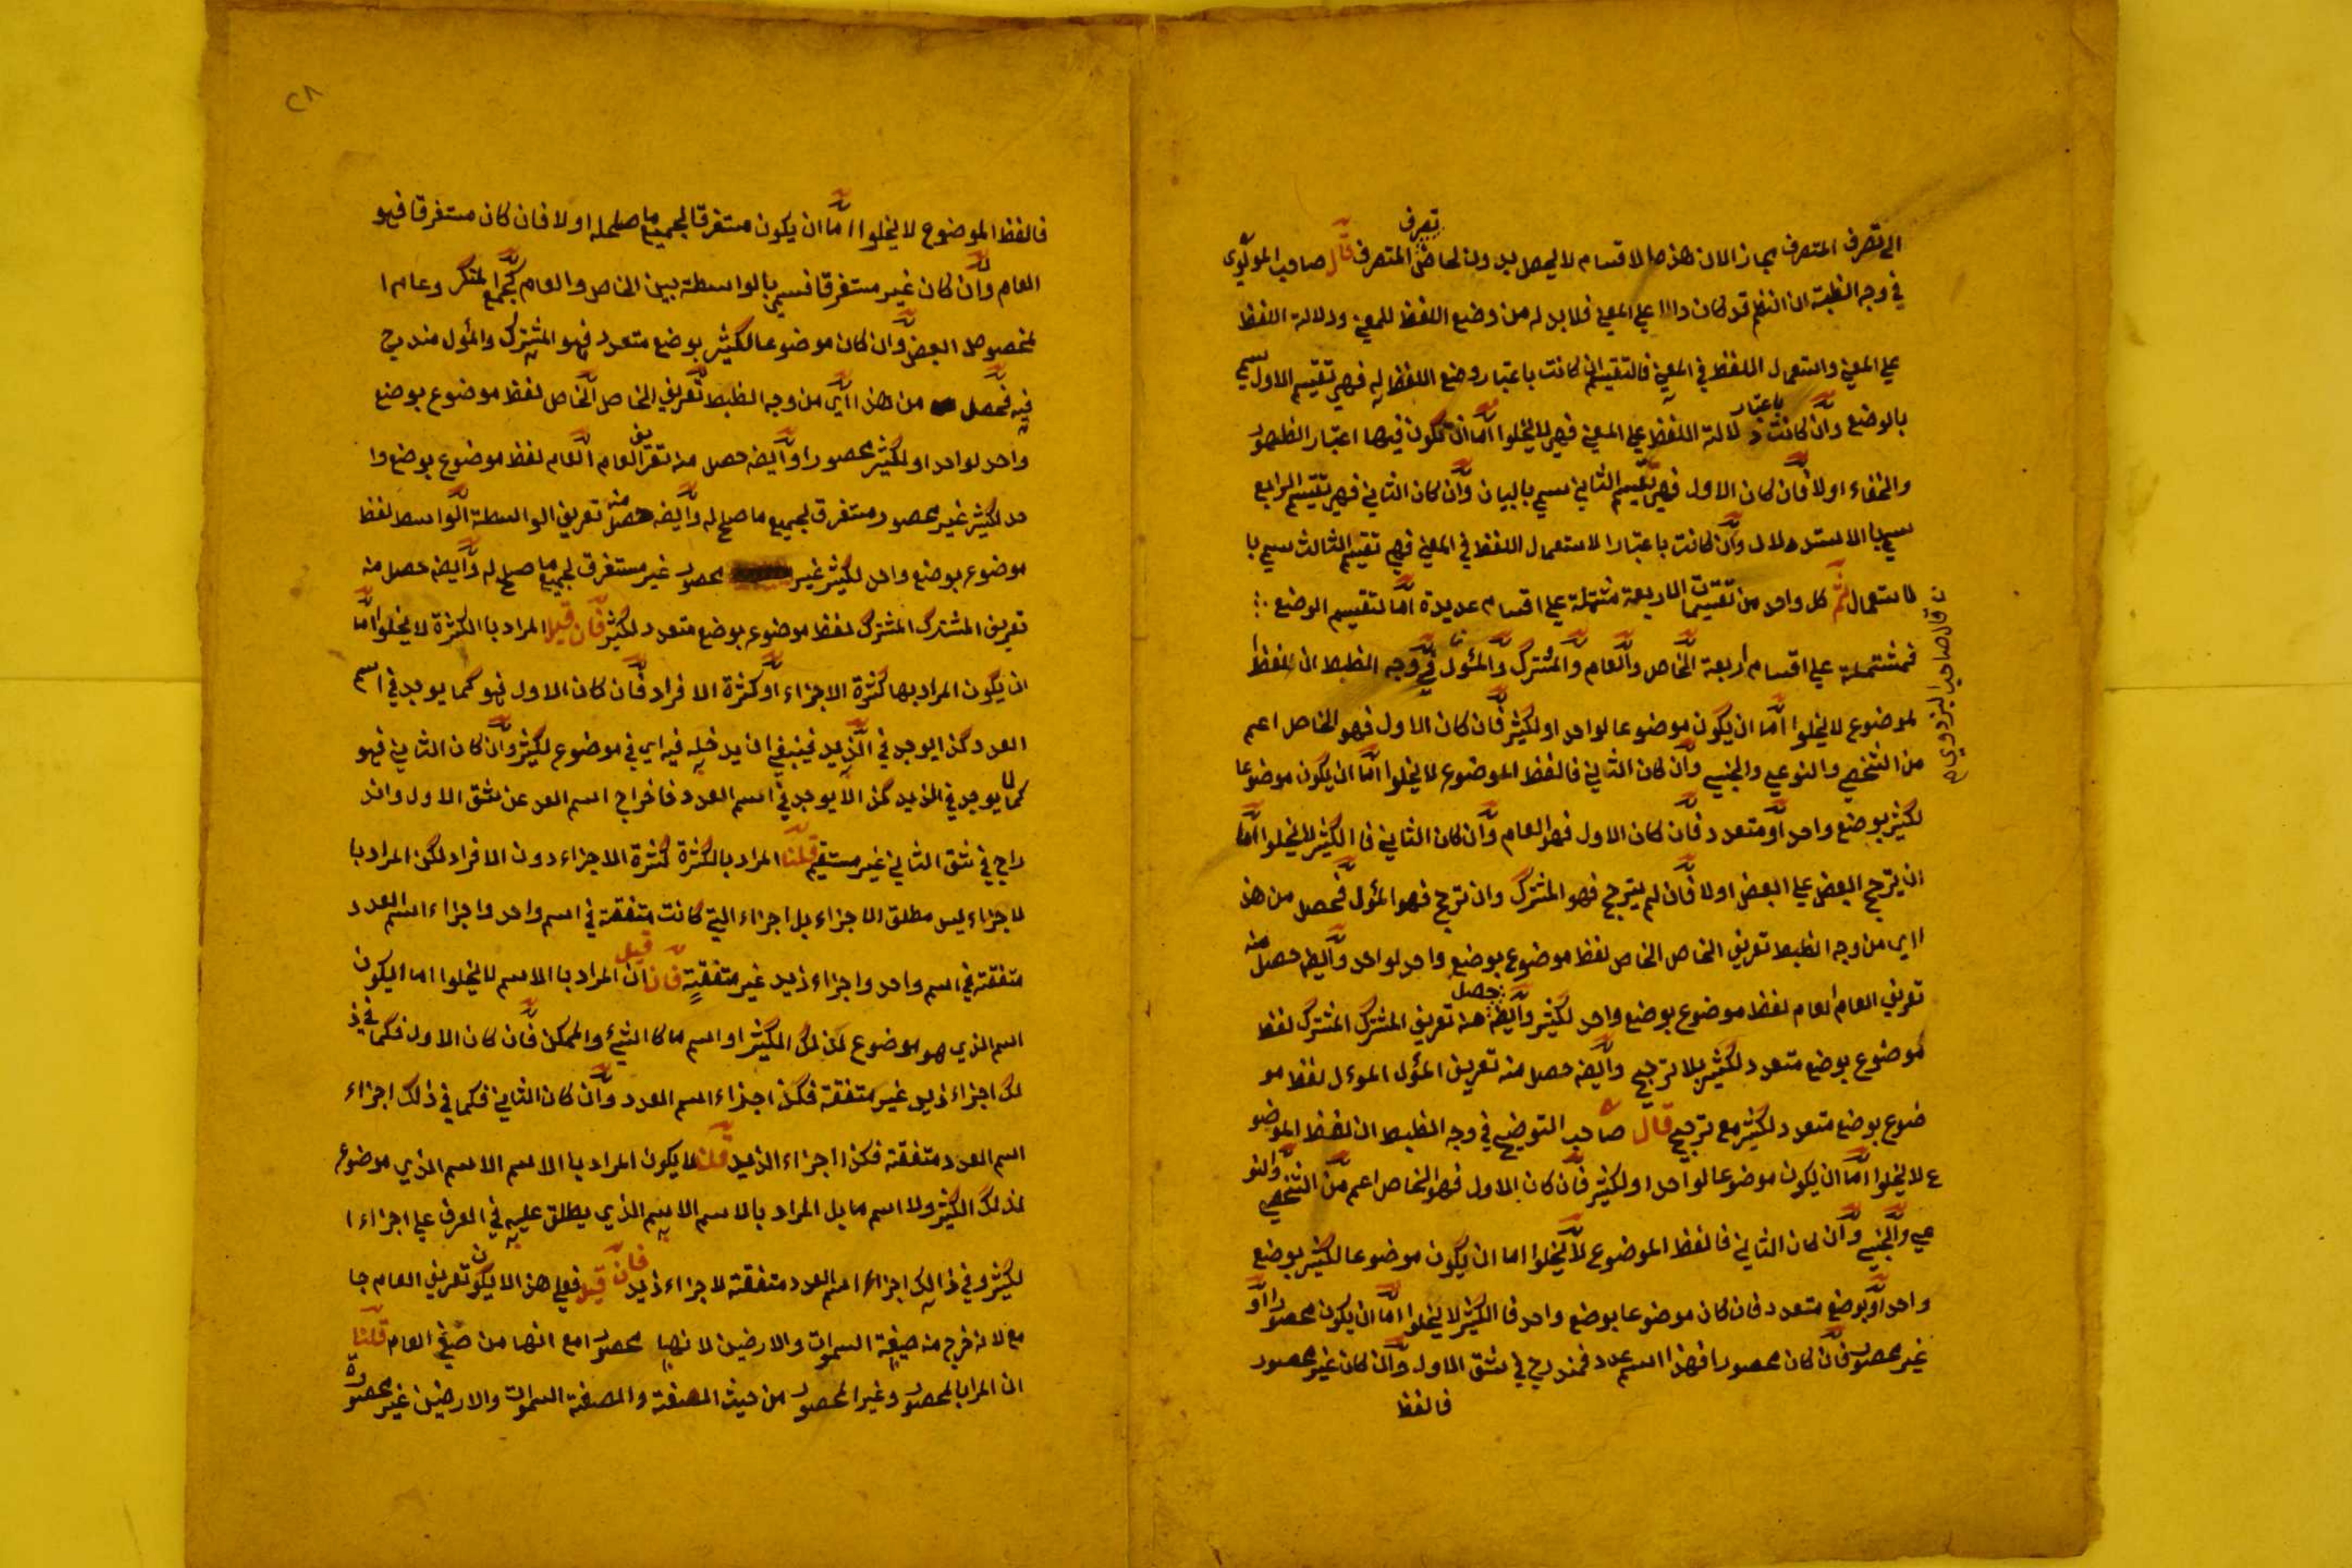 الي تصرف المتصرف يجاز الان هذه الاقسام لا يحصل بدون لحاض تصرف المتصرف قال صاحب المولوي
في وجه الظبته ان النظم قد كان دالا علي المعني فلا بد له من وضع اللفظ للمعني ودلالة اللفظ
علي المعني واستعمال اللفظ في المعني فالتقسيم ان كانت باعتبار وضع اللفظ له فهي تقسيم الاول يسمي
بالوضع وان كانت باعتبار دلالة اللفظ علي المعني فهي لا يخلوا اما ان تكون فيها اعتبار الظهور
والخفاء اولا فان كان الاول فهي تقسيم الثاني يسمي بالبيان وان كان الثاني فهي تقسيم الرابع
يسمي بالاستدلال وان كانت باعتبار الاستعمال اللفظ في المعني فهي تقسيم الثالث يسمي با
لاستعمال ثم كل واحد من تقسيمات الاربعة مشتملة علي اقسام عديدة اما لتقسيم الوضع
فمشتملة علي اقسام اربعة الخاص والعام والمشترك والمئول في وجه الظبط ان اللفظ ا
لموضوع لا يخلوا اما ان يكون موضوعا لواحد او لكثير فان كان الاول فهو الخاص اعم
من الشخصي والنوعي والجنسي وان كان الثاني فالفظ الموضوع لا يخلوا اما ان يكون موضوعا
لكثير بوضع واحد او متعدد فان كان الاول فهو العام وان كان الثاني فا الكثير لا يخلوا اما
ان يترجح البعض علي البعض اولا فان لم يترجح فهو المشترك وان ترجح فهو المؤل فحصل من هذ
ا اي من وجه الظبط تعريف الخاص الخاص لفظ موضوع بوضع واحد لواحد وايضه حصل منه
تعريف العام العام لفظ موضوع بوضع واحد لكثير وايضه حصل منه تعريف المشترك المشترك لفظ
موضوع بوضع متعدد لكثير بلا ترجيح وايضه حصل منه تعريف المؤل الموءل لفظ مو
ضوع بوضع متعدد لكثير مع ترجيح قال صاحب التوضيح في وجه الظبط ان لفظ الموضو
ع لا يخلوا اما ان يكون موضوعا لواحد او لكثير فان كان الاول فهو الخاص اعم من الشخصي والنو
عي والجنسي وان كان الثاني فالفظ الموضوع لا يخلوا اما ان يكون موضوعا لكثير بوضع
واحد او بوضع متعدد فان كان موضوعا بوضع واحد فا الكثير لا يخلوا اما ان يكون محصورا او
غير محصور فان كان محصورا فهذا اسم عدد فمندرج في شق الاول وان كان غير محصور
فالفظ
قال صاحب البزدوي
٢٨
فالفظ الموضوع لا يخلوا اما ان يكون مستغرقا لجميع ما صلح له اولا فان كان مستغرقا فهو
العام وان كان غير مستغرقا فسمي بالواسطة بين الخاص والعام كجمع المنكر وعام ا
لمخصوص البعض وان كان موضوعا لكثير بوضع متعدد فهو المشترك والمؤل مندرج
فيه فحصل من هذا اي من وجه الظبط تعريف الخاص الخاص لفظ موضوع بوضع
واحد لواحد او لكثير محصورا وايضه حصل منه تعريف العام العام لفظ موضوع بوضع وا
حد لكثير غير محصور مستغرق لجميع ما صلح له وايضه حصل منه تعريف الواسطة الواسط لفظ
موضوع بوضع واحد لكثير غير محصور غير مستغرق لجميع ما صلح له وايضه حصل منه
تعريف المشترك المشترك لفظ موضوع بوضع متعدد لكثير فان قيل المراد با الكثرة لا يخلوا اما
ان يكون المراد بها كثرة الاجزاء او كثرة الافراد فان كان الاول فهو كما يوجد في اسم
العدد كذا يوجد في الزيد فينبغي ان يدخله فيه اي في موضوع لكثير وان كان الثاني فهو
كما لا يوجد في الزيد كذا لا يوجد في اسم العدد فاخراج اسم العد عن شق الاول واند
راج في شق الثاني غير مستقيم قلنا المراد بالكثرة كثرة الاجزاء دون الافراد لكن المراد با
لاجزاء ليس مطلق الاجزاء بل اجزاء التي كانت متفقة في اسم واحد واجزاء اسم العدد
متفقة في اسم واحد واجزاء زيد غير متفقة فان قيل ان المراد با الاسم لا يخلوا اما اليكون
اسم الذي هو موضوع لذلك الكثير او اسم ما كا الشيء والممكن فان كان الاول فكما في ذ
لك اجزاء زيد غير متفقة فكذا اجزاء اسم العدد وان كان الثاني فكما في ذلك اجزاء
اسم العدد متفقة فكذا اجزاء الزيد قلنا لا يكون المراد با الاسم الاسم الذي موضوع
لذلك الكثير ولا اسم ما بل المراد بالاسم الاسم الذي يطلق عليه في العرف علي اجزاء ا
لكثير وفي ذالك اجزاء اسم العدد متفقة لا جزاء زيد فان قيل فعلي هذا لا يكون تعريف العام جا
مع لانه خرج منه صيغة السموات والارضين لانها محصور امع انها من صيغ العام قلنا
ان المراد بالمحصور وغير المحصور من حيث الصفة والصفة السموات والارضين غير محصورة